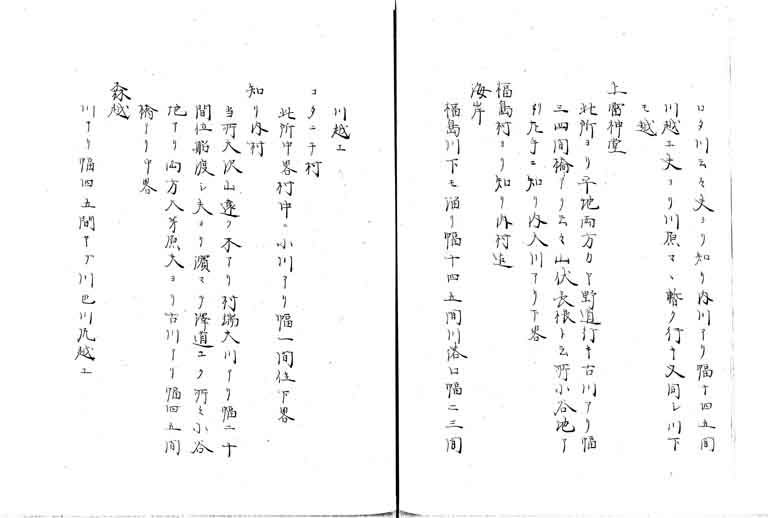 ロタ川云々夫ヨリ知り内川アリ幅十四五間
川越エ夫ヨリ川原マヽ暫ク行キ又同シ川下
モ越
上雷神堂
此所ヨリ平地両方カヤ野道打キ古川アリ幅
三四間橋アリ云々山伏長根ト云所小谷地ア
リ左手ニ知リ内入川アリ下畧
福島村ヨリ知リ内村迄
海岸
福島川下モ泊リ幅十四五間川落口幅二三間
川越エ
コタニチ村
此所中畧村中ニ小川アリ幅一間位下畧
知リ内村
当所大沢山遠ク木アリ村端大川アリ幅二十
間位船渡シ夫ヨリ濱マテ澤道ニク所々小谷
地アリ両方入茅原夫ヨリ古川アリ幅四五間
橋アリ中畧
森越
川アリ幅四五間ヤケ川巴川九越エ